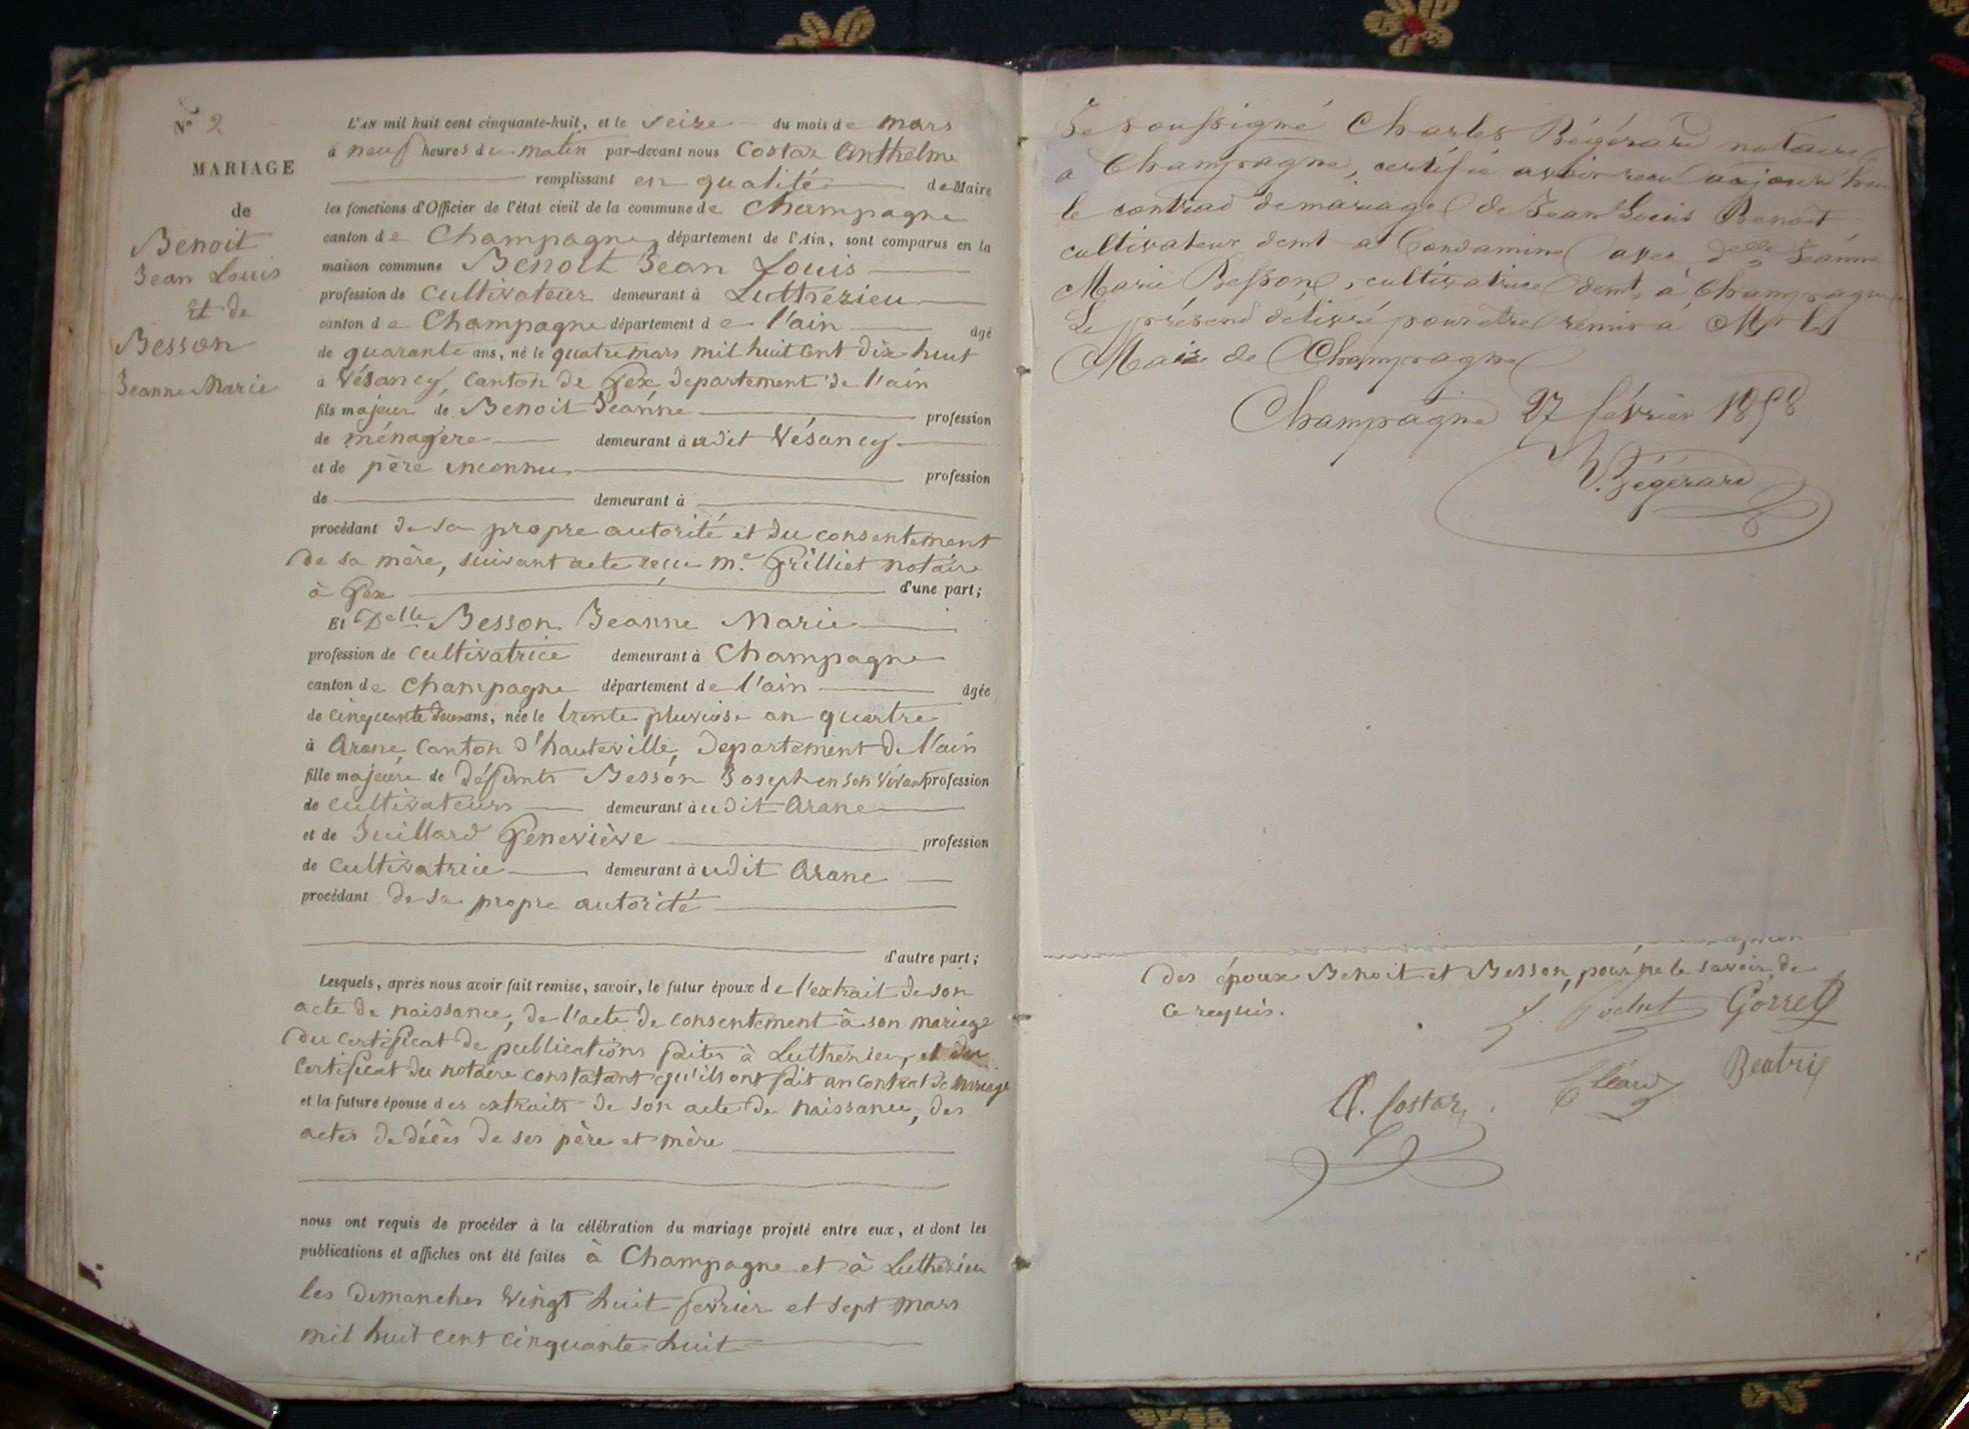 N° 2
MARIAGE
de
Benoit
Jean Louis
Et de
Besson
Jeanne Marie
L'AN mil huit cent cinquante-huit, et le seize du mois de mars
à neuf heures du matin par-devant nous Costaz Anthelme
remplissant en qualité de Maire
les fonctions d'Officier de l'état civil de la commune de Champagne
canton de Champagne, département de l'Ain, sont comparus en la
maison commune Benoit Jean Louis
profession de cultivateur demeurant à Luthrezieu
canton de Champagne département de l'ain âgé
de quarante ans, né le quatre mars mil huit cent dix huit
à Vésancy, canton de Gex departement de l'ain
fils majeur de Benoit Jeanne profession
de ménagère demeurant à udit Vésancy
et de père inconnu profession
de demeurant à
procédant de sa propre autorité et du consentement
de sa mère, suivant acte reçu me. Grilliet notaire
à Gex d'une part;
Et Delle Besson Jeanne Marie
profession de cultivatrice demeurant à Champagne
canton de Champagne département de l'ain âgée
de cinquante deux ans, née le trente pluviose an quatre
à Arane, canton d'hauteville, departement de l'ain
fille majeure de défunts Besson Joseph en son vivant profession
de cultivateur demeurant à udit Arane
et de Juillard Geneviève profession
de cultivatrice demeurant à udit Arane
procédant de sa propre autorité
d'autre part;
Lesquels, après nous avoir fait remise, savoir, le futur époux de l'extrait de son
acte de naissance, de l'acte de consentement à son mariage
du certificat de publications faites à Luthrezieu, et du
certificat du notaire constatant qu'ils ont fait un contrat de mariage
et la future épouse des extraits de son acte de naissance, des
actes de décès de ses père et mère
nous ont requis de procéder à la célébration du mariage projeté entre eux, et dont les
publications et affiches ont été faites à Champagne et à Luthrezieu
les dimanches vingt huit fevrier et sept mars
mil huit cent cinquante huit
Je soussigné Charles Bégérard notaire
a Champagne, certifie avoir recu aujourd'hui
le contrad de mariage de Jean Louis Benoit
cultivateur demt a Condamine avec Delle Jeanne
Marie Besson, cultivatrice demt à Champagne
Le présend délivré pour etre remis à Mr le
Maire de Champagne
Champagne 27 février 1858
Bégérard
des époux Benoit et Besson, pour ne le savoir, de
ce requis.
Gorret
Beatrix
A. Costaz